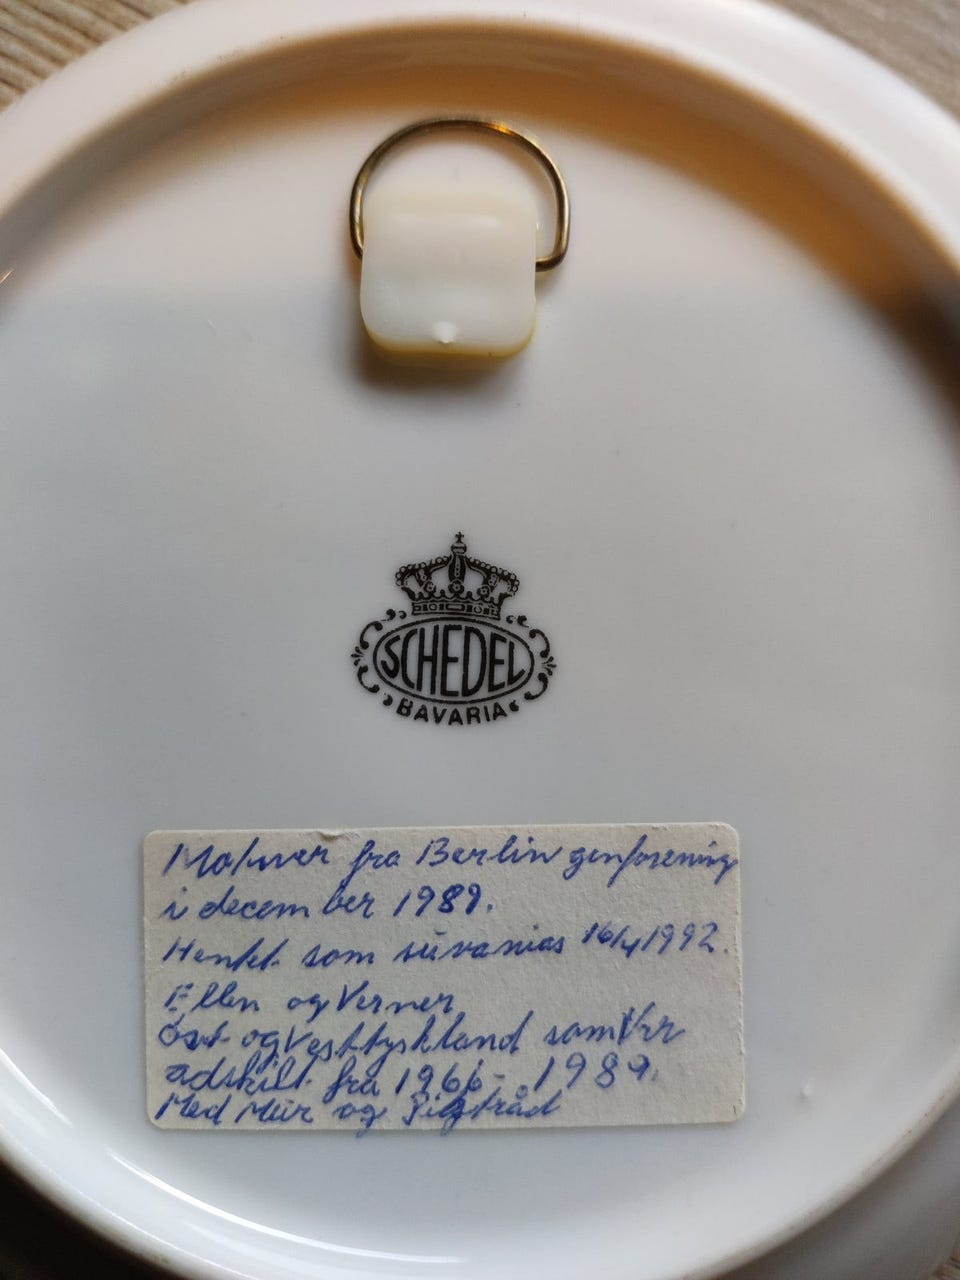 SCHEDEL
BAVARIA
fra Berlin genforening
i december 1989.
Hentet som 16/4 1992.
Ellen og Verner
Øst og Vesttyskland som Var
adskilt fra 1966 - 1989.
Med Mur og Pigtråd